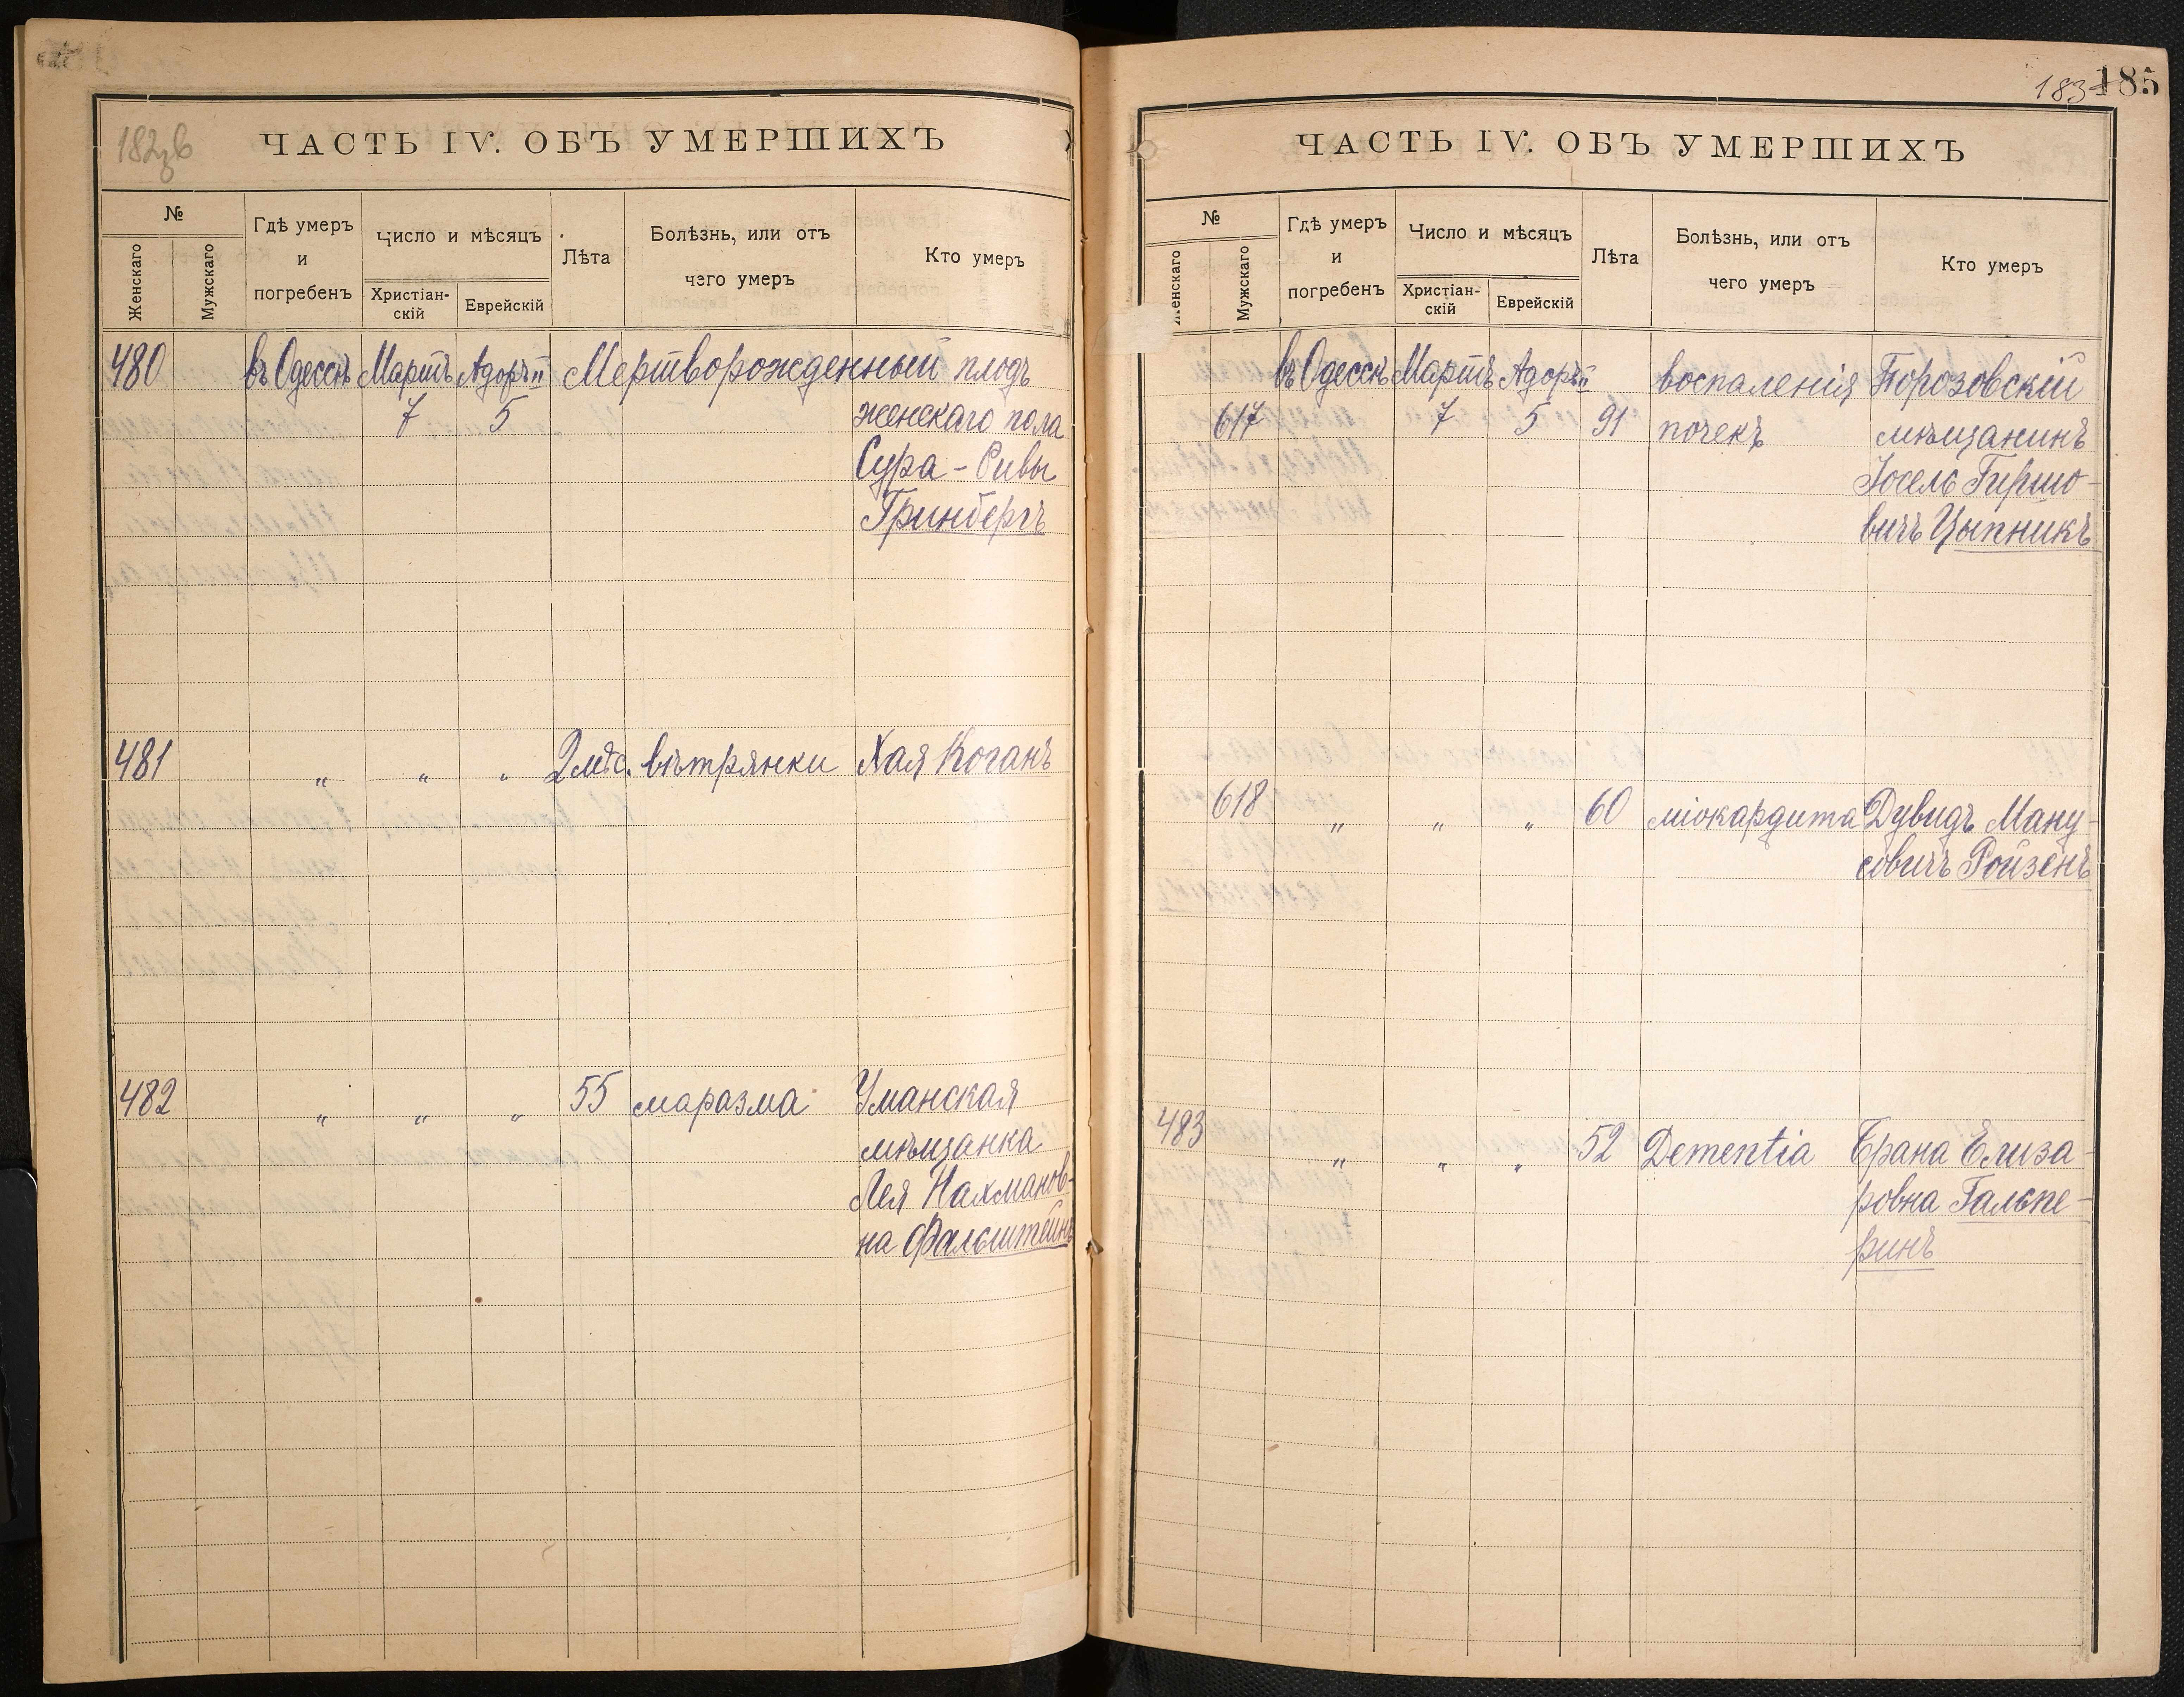 182об
ЧАСТЬ IV. ОБЪ УМЕРШИХЪ
№
Женскаго
Мужскаго
Гдѣ умеръ
и
погребенъ
Число и мѣсяцъ
Христіан-
скій
Еврейскій
Лѣта
Болѣзнь, или отъ
чего умеръ
Кто умеръ
480 въ Одессѣ Мартъ Адоръ II Мертворожденный плодъ
7 5 женскаго пола
Сура - Ривы
Гринбергъ
481 „ „ „ 2 мѣс. вѣтрянки Хая Коганъ
482 „ „ „ 55 маразма Уманская
мѣщанка
Лея Нахманов-
на Фальштейнъ
183 185
ЧАСТЬ IV. ОБЪ УМЕРШИХЪ
№
Женскаго
Мужскаго
Гдѣ умеръ
и
погребенъ
Число и мѣсяцъ
Христіан-
скій
Еврейскій
Лѣта
Болѣзнь, или отъ
чего умеръ
Кто умеръ
въ Одессѣ Мартъ Адоръ II воспаленія Порозовскій
617 7 5 91 почекъ мѣщанинъ
Іосель Гиршо-
вичъ Цыпникъ
618 „ „ „ 60 міокардита Дувидъ Ману-
совичъ Ройзенъ
483 „ „ „ 52 Dementia Брана Елиза-
ровна Гальпе-
ринъ